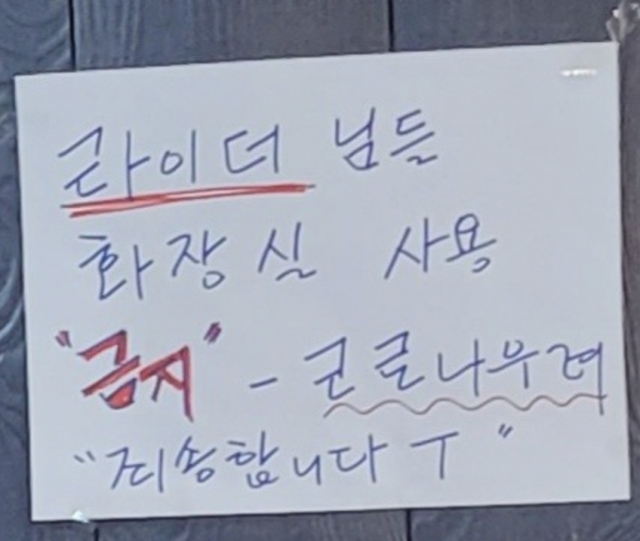 라이더 님들
화장실 사용
"금지" - 코로나우려
"죄송합니다 ㅜ"